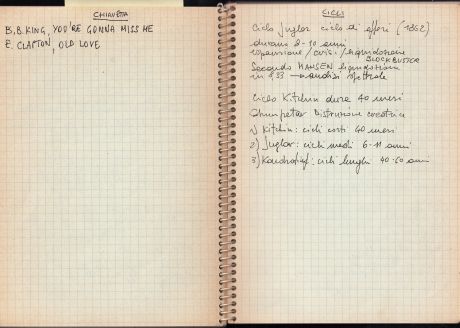 CHIAVETTA
B.B. KING, YOU'RE GONNA MISS ME
E. CLAPTON, OLD LOVE
25
CICLI
Ciclo Juglar ciclo di affari (1862)
durano 8-10 anni
espansione / crisi / liquidazione
BLOCKBUSTER
Secondo HANSEN liquidazione
in &33 → analisi spettrale
Ciclo Kitchin dura 40 mesi
Schumpeter Distruzione creatrice
1) Kitchin: cicli corti 40 mesi
2) Juglar: cicli medi 6-11 anni
3) Kondratief: cicli lunghi 40-60 anni